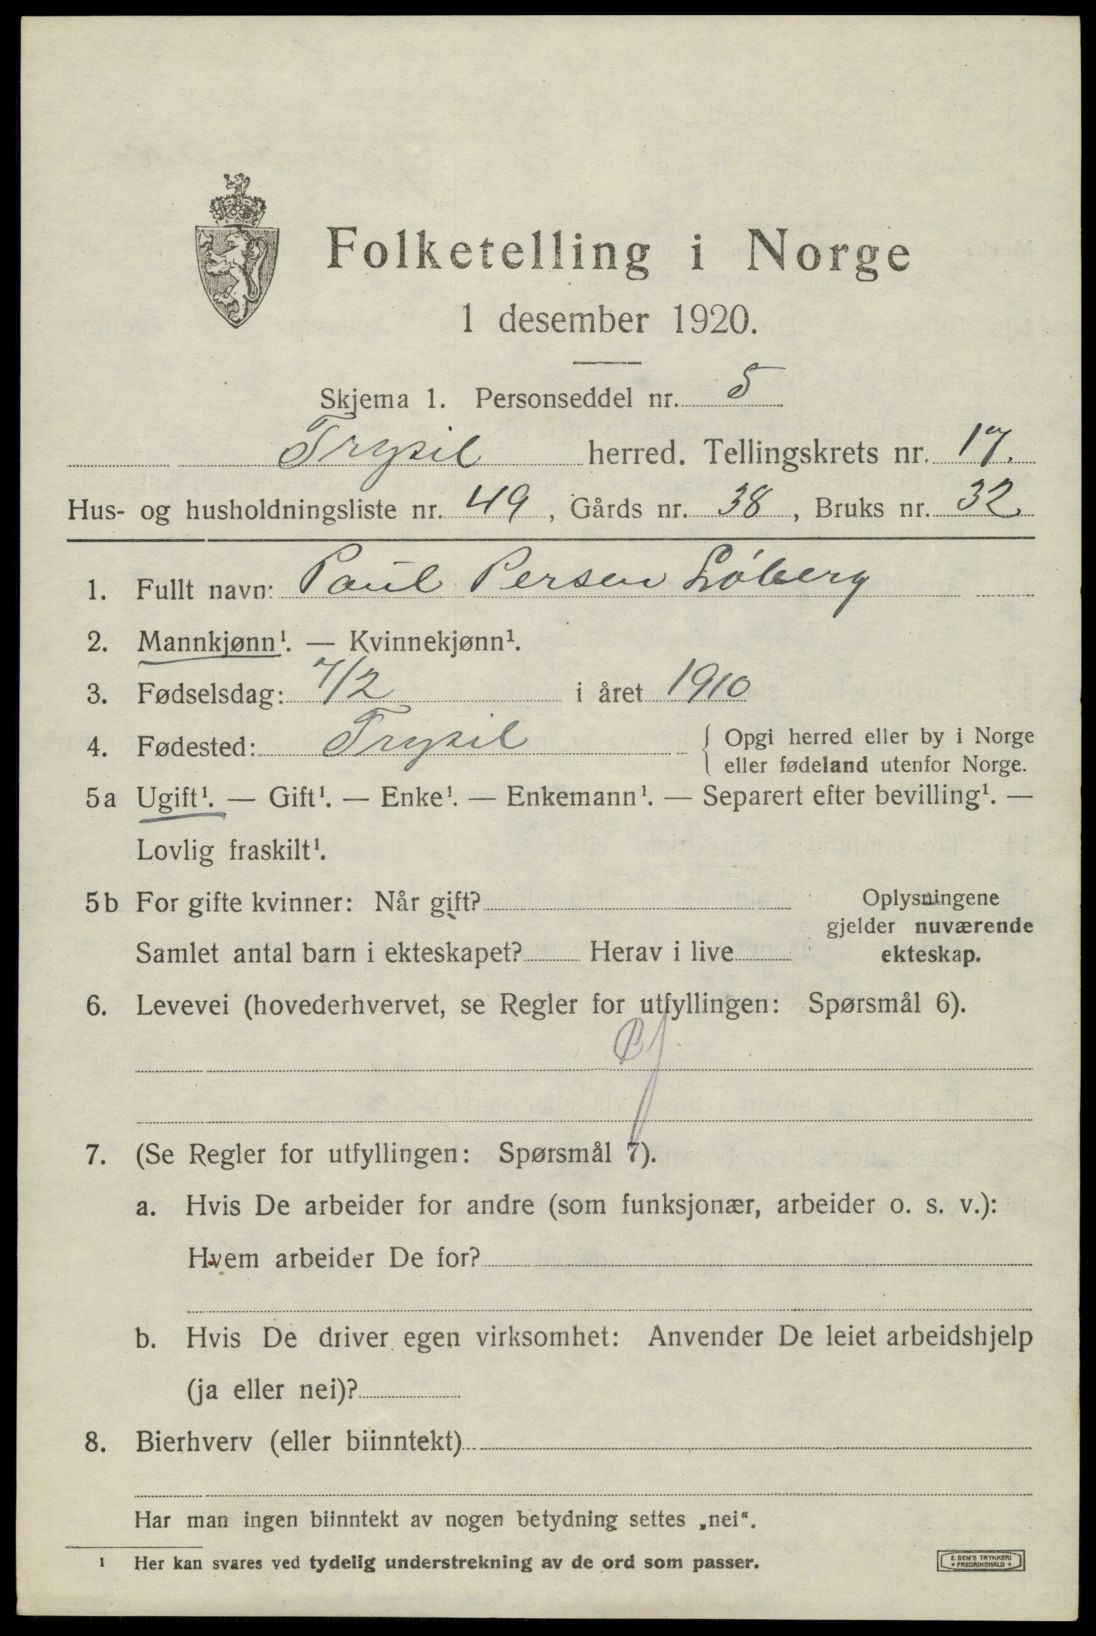 Folketelling i Norge
1 desember 1920.
Skjema 1. Personseddel nr. 5
Trysil herred. Tellingskrets nr. 17.
Hus- og husholdningsliste nr. 49, Gårds nr. 38, Bruks nr. 32
1. Fullt navn: Paul Persen Løberg
2. Mannkjønn¹. — Kvinnekjønn¹.
3. Fødselsdag: 7/2 i året 1910
4. Fødested: Trysil { Opgi herred eller by i Norge
eller fødeland utenfor Norge.
5a Ugift¹. — Gift¹. — Enke¹. — Enkemann¹. — Separert efter bevilling¹. —
Lovlig fraskilt¹.
5b For gifte kvinner: Når gift? Oplysningene
gjelder nuværende
Samlet antal barn i ekteskapet? Herav i live ekteskap.
6. Levevei (hovederhvervet, se Regler for utfyllingen: Spørsmål 6).
7. (Se Regler for utfyllingen: Spørsmål 7).
a. Hvis De arbeider for andre (som funksjonær, arbeider o. s. v.):
Hvem arbeider De for?
b. Hvis De driver egen virksomhet: Anvender De leiet arbeidshjelp
(ja eller nei)?
8. Bierhverv (eller biinntekt)
Har man ingen biinntekt av nogen betydning settes „nei".
¹ Her kan svares ved tydelig understrekning av de ord som passer.
E. SEM'S TRYKKERI
• FREDRIKSHALD •